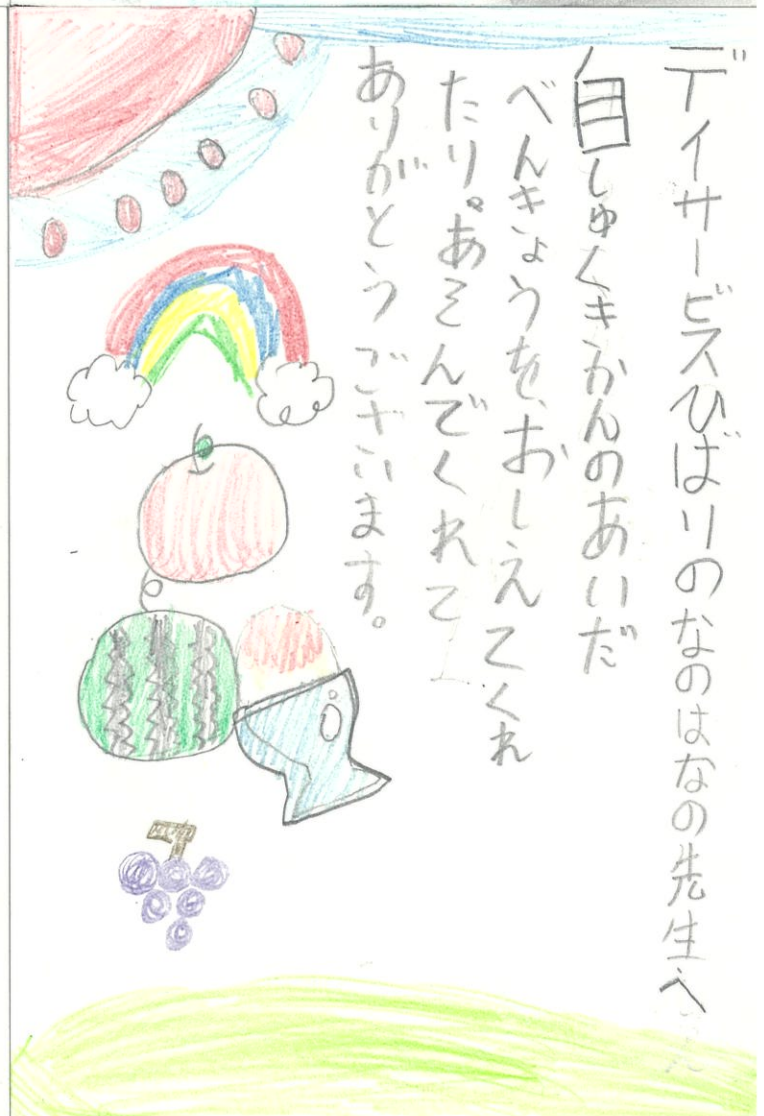 デイサービスひばりのなのはなの先生へ
自しゅくきかんのあいだ
べんきょうを、おしえてくれ
たり。あそんでくれて
ありがとうございます。